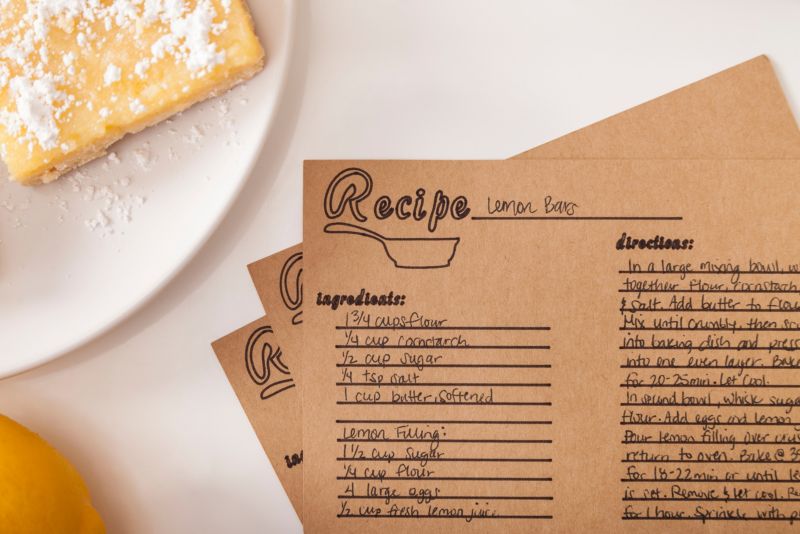 Recipe Lemon Bars
ingredients:
1 3/4 cups flour
1/4 cup cornstarch
1/2 cup sugar
1/4 tsp salt
1 cup butter, softened
Lemon Filling:
1 1/2 cup sugar
1/4 cup flour
4 large eggs
1/2 cup fresh lemon juice
directions:
In a large mixing bowl, w
together flour, cornstarch
& salt. Add butter to flou
Mix until crumbly, then
into baking dish and press
into one even layer. Bake
for 20-25 min. Let cool.
In second bowl, whisk suga
flour. Add eggs and lemon
Pour lemon filling over
return to oven. Bake @ 3
for 18-22 min or until le
is set. Remove & let cool.
for 1 hour. Sprinkle with p